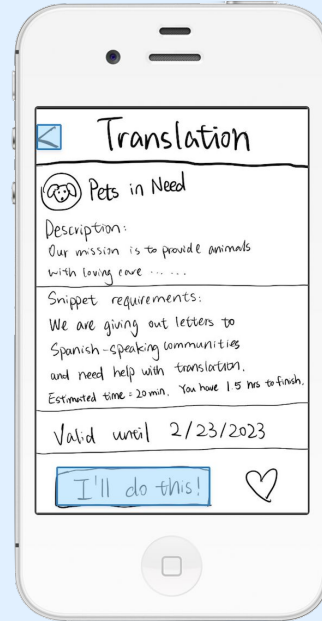 Translation
Pets in Need
Description:
Our mission is to provide animals
with loving care ......
Snippet requirements:
We are giving out letters to
Spanish-speaking communities
and need help with translation.
Estimated time = 20 min. You have 1.5 hrs to finish.
Valid until 2/23/2023
I'll do this!